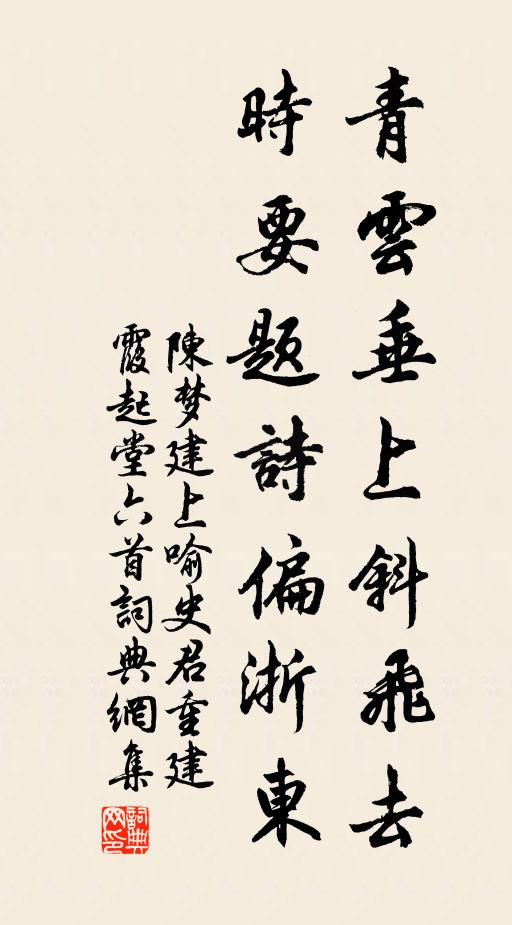 青雲垂上斜飛去
時要題詩偏浙東
陳梦建上喻史君重建
霞起堂六首詞典網集
詞典网印